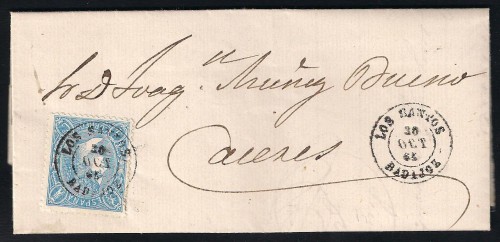 Sr D Joaqn Muñoz Bueno
Caceres
LOS SANTOS
20
OCT
65
BADAJOZ
LOS SANTOS
20
OCT
65
BADAJOZ
ESPAÑA